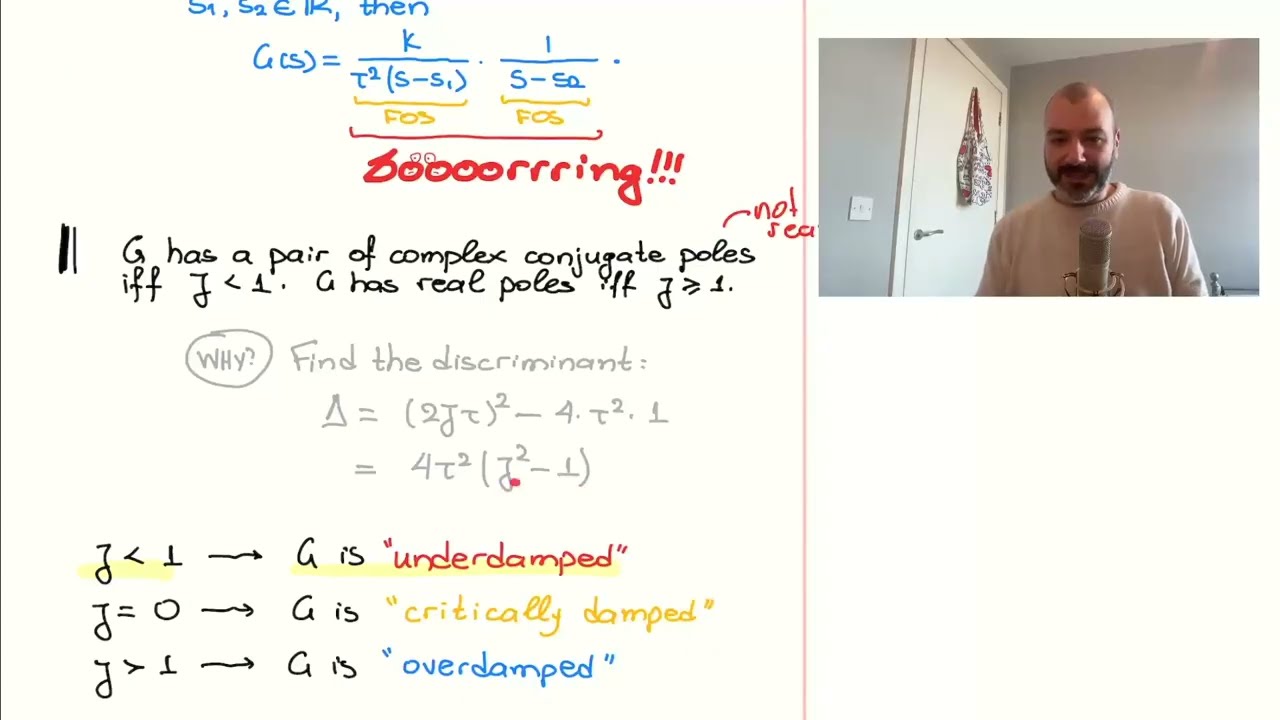 S₁, S₂ ∈ ℝ, then
G(s) = K / τ²(S-S₁) · 1 / S-S₂ .
FOS FOS
Boooorrring!!!
not
rea
G has a pair of complex conjugate poles
iff ζ < 1. G has real poles iff ζ ≥ 1.
WHY? Find the discriminant:
Δ = (2ζτ)² - 4·τ²·1
= 4τ²(ζ² - 1)
ζ < 1 → G is "underdamped"
ζ = 0 → G is "critically damped"
ζ > 1 → G is "overdamped"